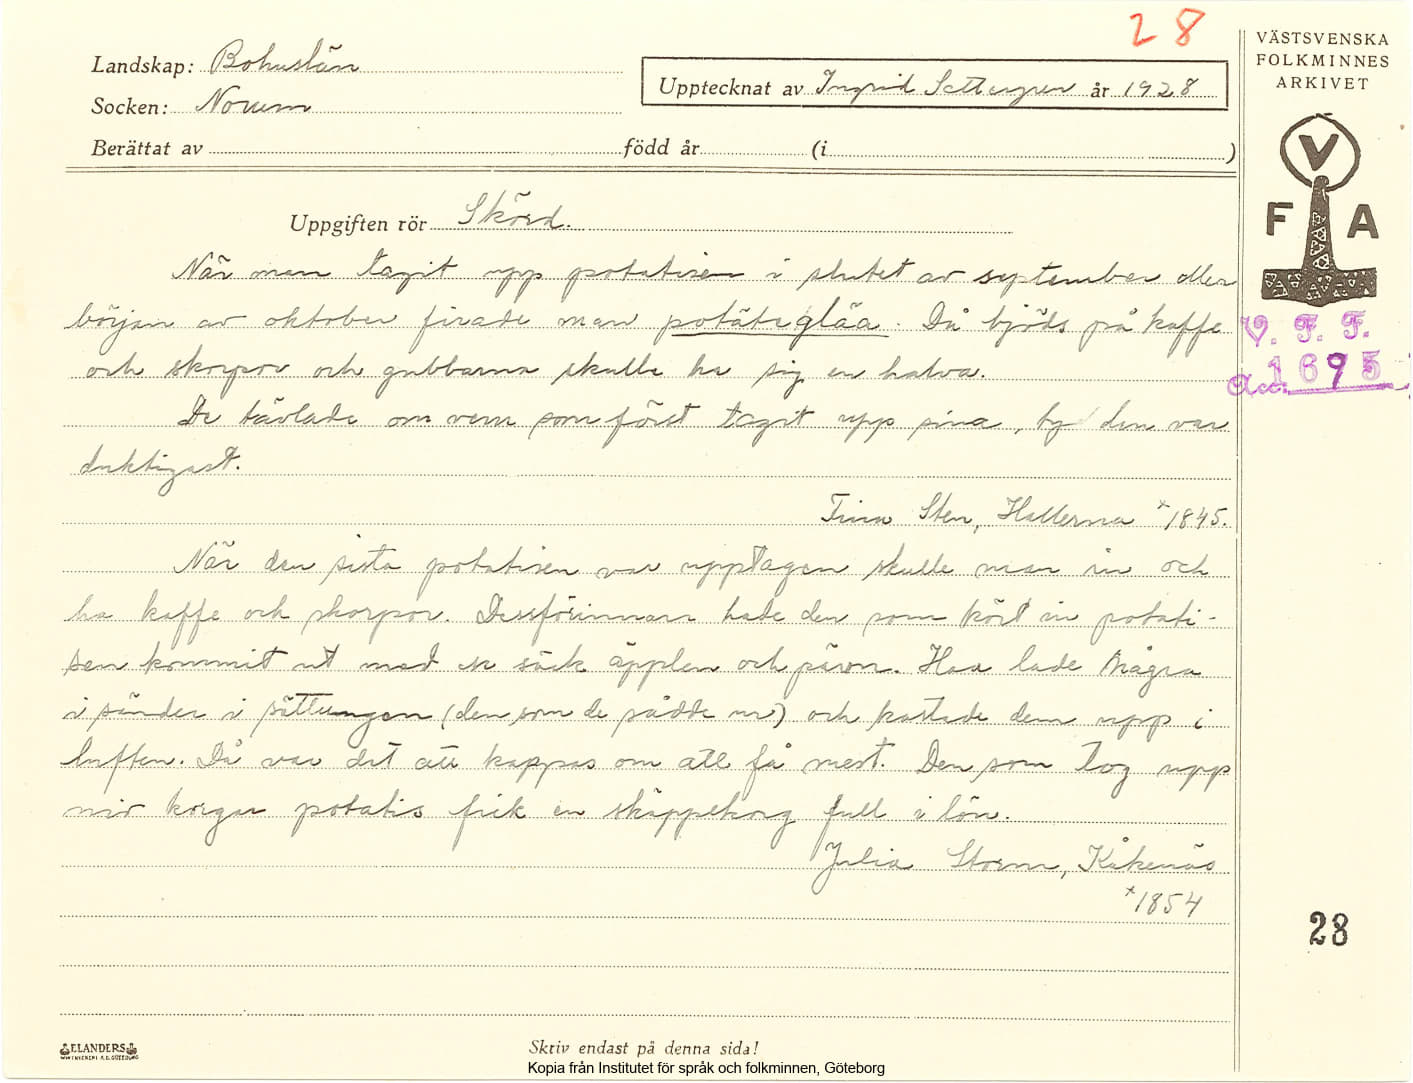 28
VÄSTSVENSKA
FOLKMINNES
ARKIVET
Landskap: Bohuslän
Upptecknat av Ingrid Settergren år 1928
Socken: Norum
Berättat av född år (i )
V
F A
Uppgiften rör Skörd.
V. F. F.
Acc. 1695
När man tagit upp potatisen i slutet av september eller
början av oktober firade man potätegläa. Då bjöds på kaffe
och skorpor och gubbarna skulle ha sig en halva.
De tävlade om vem som först tagit upp sina, ty den var
duktigast.
Tina Sten, Hallerna *1845.
När den sista potatisen var upptagen skulle man in och
ha kaffe och skorpor. Dessförinnan hade den som kört in potati-
sen kommit ut med en säck äpplen och päron. Han lade några
i sänder i sättungen (den som de sådde ur) och kastade dem upp i
luften. Då var det att kappas om att få mest. Den som tog upp
mest korgar potatis fick en skäppekorg full i lön.
Julia Storm, Kåkenäs
*1854
28
ELANDERS
Skriv endast på denna sida!
Kopia från Institutet för språk och folkminnen, Göteborg